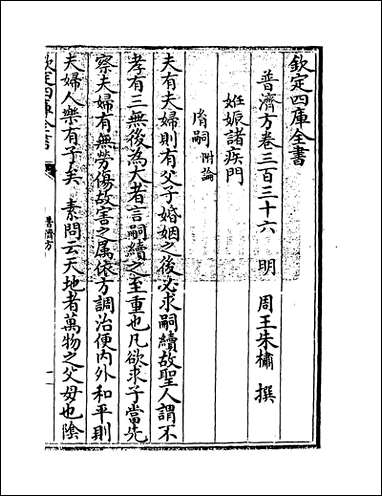 欽定四庫全書
普濟方卷三百三十六 明 周王朱橚 撰
妊娠諸疾門
 嗣 附論
夫有夫婦則有父子婚姻之後必求嗣續故聖人謂不
孝有三無後為大者言嗣續之至重也凡欲求子當先
察夫婦有無勞傷故害之属依方調治便內外和平則
夫婦人樂有子矣 素問云天地者萬物之父母也陰
欽定四庫全書
普濟方
一